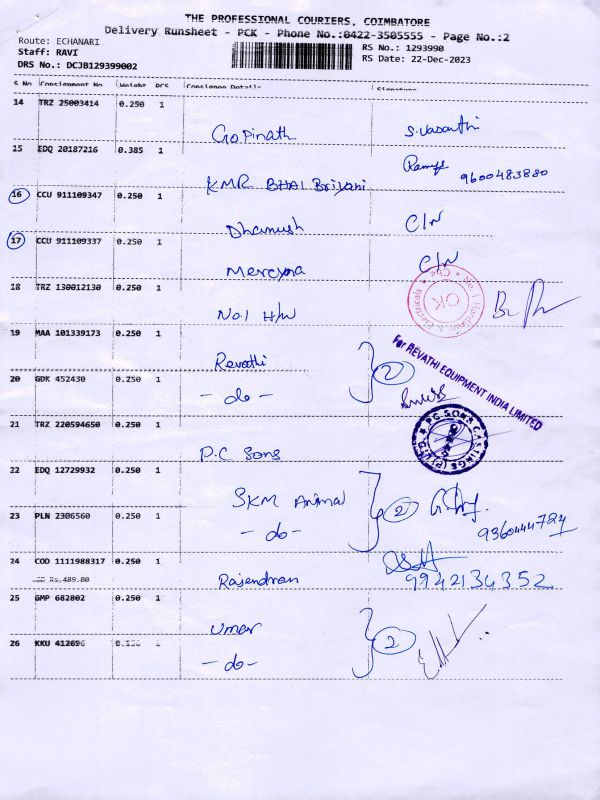 THE PROFESSIONAL COURIERS, COIMBATORE
Delivery Runsheet - PCK - Phone No.:0422-3505555 - Page No.:2
Route: ECHANARI
Staff: RAVI
DRS No.: DCJB129399002
RS No.: 1293990
RS Date: 22-Dec-2023
S No Consignment No Weight PCS Consignee Details Signature
14 TRZ 25003414 0.250 1 Gopinath S.Vasanthi
15 EDQ 20187216 0.385 1 KMR BHAI Briyani 9600483880
16 CCU 911109347 0.250 1 Dhanush C/N
17 CCU 911109337 0.250 1 C/N
18 TRZ 130012130 0.250 1 No.1 H/W
OK
19 MAA 101339173 0.250 1 Revathi 2
For REVATHI EQUIPMENT INDIA LIMITED
20 GDK 452430 0.250 1 - do -
21 TRZ 220594650 0.250 1 P.C Sons
P.C. SONS CASTINGS (P) LTD.
22 EDQ 12729932 0.250 1 SKM Animal 2
23 PLN 2306560 0.250 1 - do - 9360444724
24 COD 1111988317 0.250 1 Rajendran 9942134352
Rs.489.00
25 GMP 682802 0.250 1 Umar 2
26 KKU 412696 1 - do -